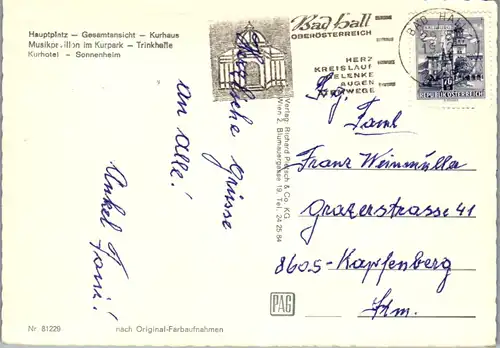 Hauptplatz — Gesamtansicht — Kurhaus
Musikpavillon im Kurpark — Trinkhalle
Kurhotel — Sonnenheim
Herzliche Grüsse
an alle!
Onkel Toni!
Nr. 81229
nach Original-Farbaufnahmen
Verlag Richard Pietsch & Co. KG
Wien 2, Blumauergasse 19, Tel. 24 25 84
PAG
Bad Hall
OBERÖSTERREICH
HERZ
KREISLAUF
GELENKE
AUGEN
BAD HALL
REPUBLIK ÖSTERREICH
Fam.
Franz Weinmüller
Grazerstrasse 41
8605-Kapfenberg
Stm.